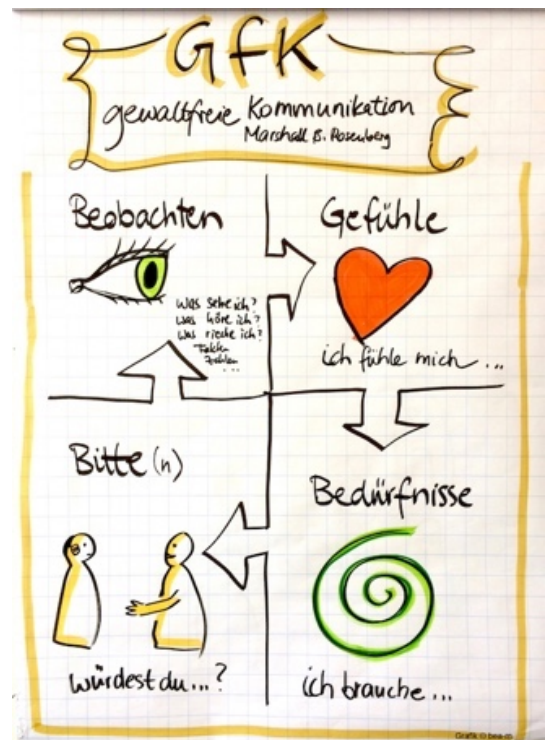 GFK
gewaltfreie Kommunikation
Marshall B. Rosenberg
Beobachten
Was sehe ich?
Was höre ich?
Was rieche ich?
Fakten
Zahlen
...
Gefühle
ich fühle mich...
Bedürfnisse
ich brauche...
Bitte (n)
würdest du...?